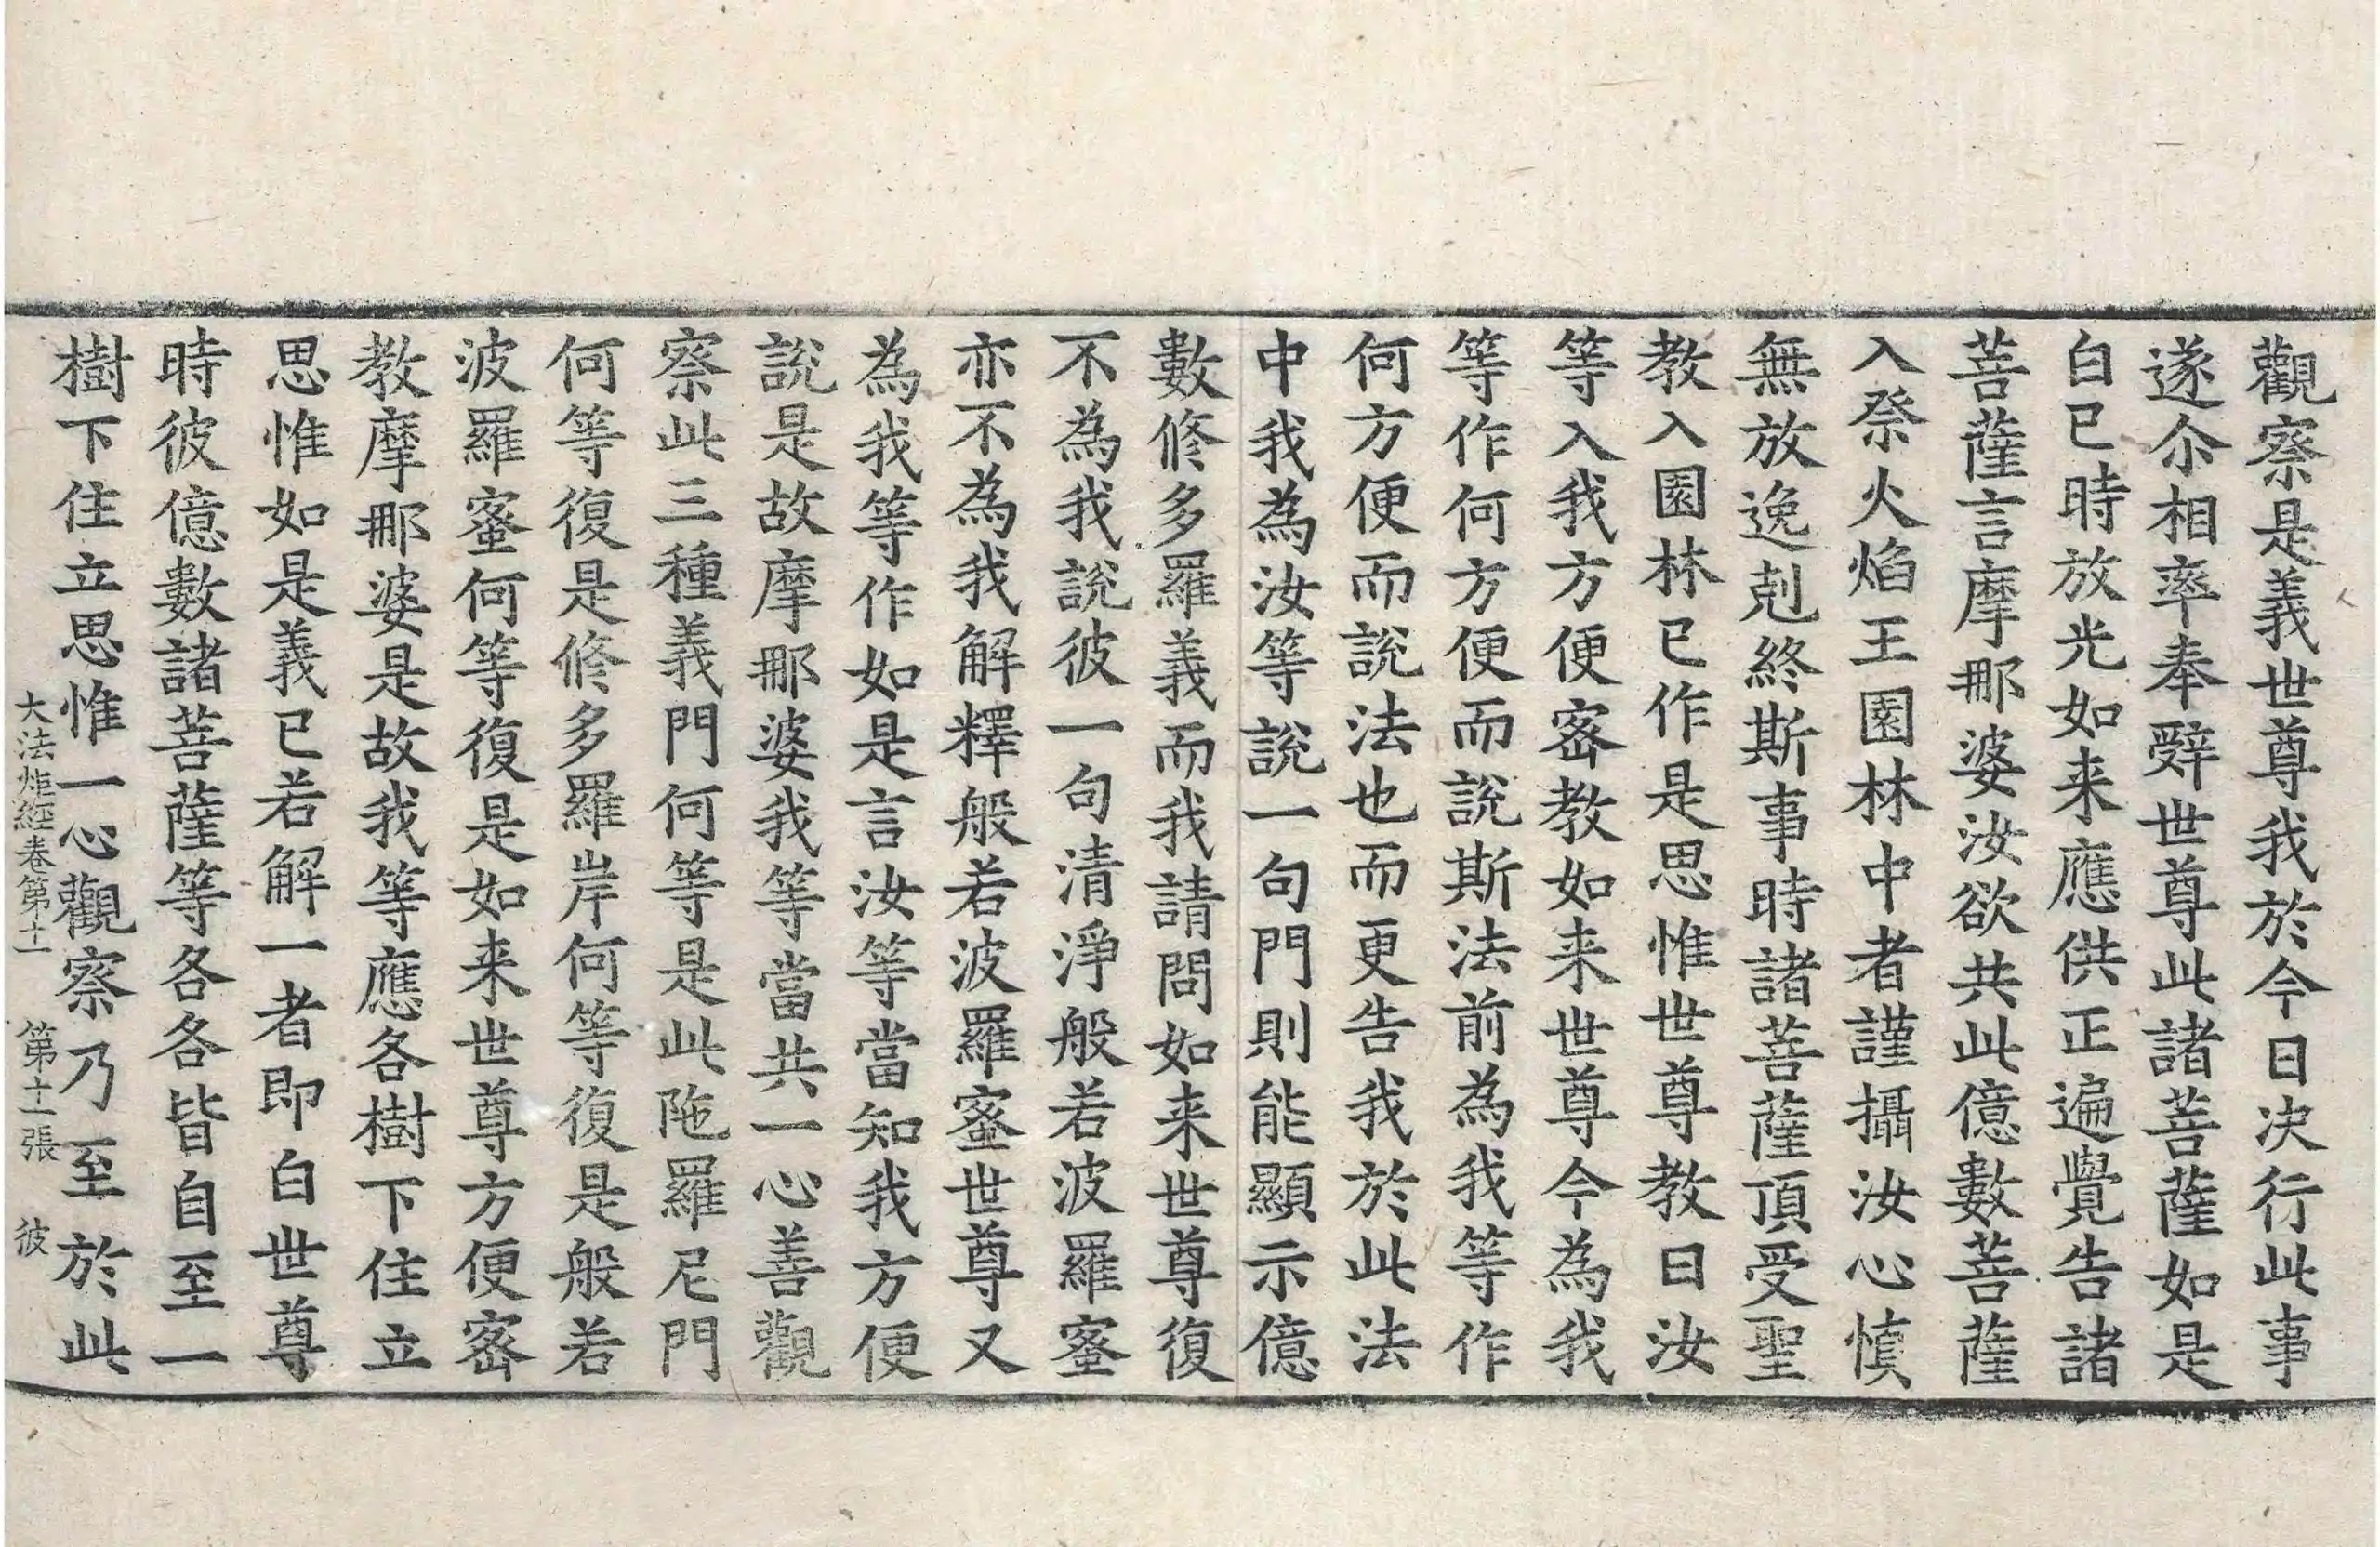 觀察是義世尊我於今日决行此事
遂尒相率奉辤世尊此諸菩薩如是
白已時放光如来應供正遍覺告諸
菩薩言摩那婆汝欲共此億數菩薩
入祭火焰王園林中者謹攝汝心慎
無放逸剋終斯事時諸菩薩頂受聖
教入園林已作是思惟世尊教曰汝
等入我方便宻教如来世尊今為我
等作何方便而說斯法前為我等作
何方便而說法也而更告我於此法
中我為汝等說一句門則能顯示億
數修多羅義而我請問如来世尊復
不為我說彼一句清淨般若波羅蜜
亦不為我解釋般若波羅蜜世尊又
為我等作如是言汝等當知我方便
說是故摩那婆我等當共一心善觀
察此三種義門何等是此陁羅尼門
何等復是修多羅岸何等復是般若
波羅蜜何等復是如来世尊方便宻
教摩那婆是故我等應各樹下住立
思惟如是義已若解一者即白世尊
時彼億數諸菩薩等各各皆自至一
樹下住立思惟一心觀察乃至於此
大法炬經卷第十一 第十二張 彼